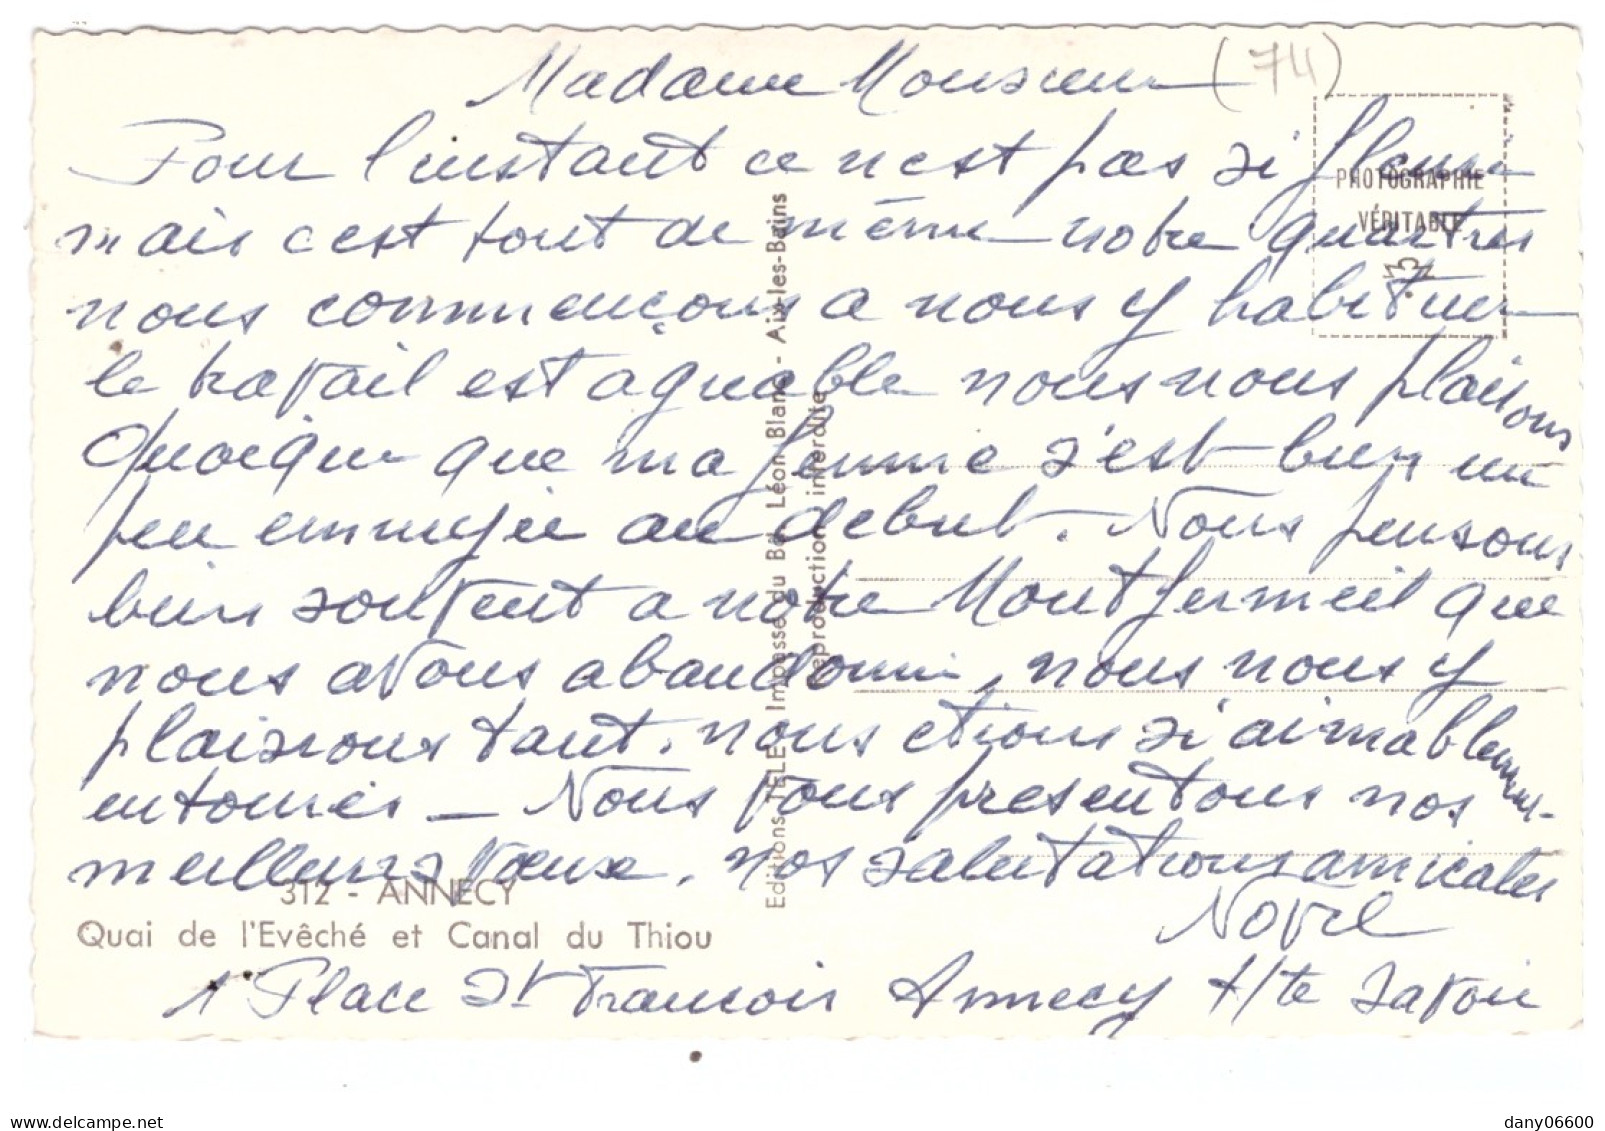 (74)
Madame Monsieur
Pour l'instant ce n'est pas si fleuri
mais c'est tout de même notre quartier
nous commençons a nous y habituer
le travail est agreable nous nous plaisons
Quoique que ma femme s'est bien un
peu ennuyée au debut. Nous pensons
bien souvent a notre Montfermeil que
nous avons abandonné, nous nous y
plaisions tant, nous etions si aimablement
entourés — Nous vous presentons nos
meilleurs vœux, nos salutations amicales
Novel
1 Place St Francois Annecy Hte Savoie
PHOTOGRAPHIE
VÉRITABLE
312 - ANNECY
Quai de l'Evêché et Canal du Thiou
Editions TELE Impasse du Bd Léon Blanc - Aix-les-Bains
reproduction interdite
delcampe.net
dany06600